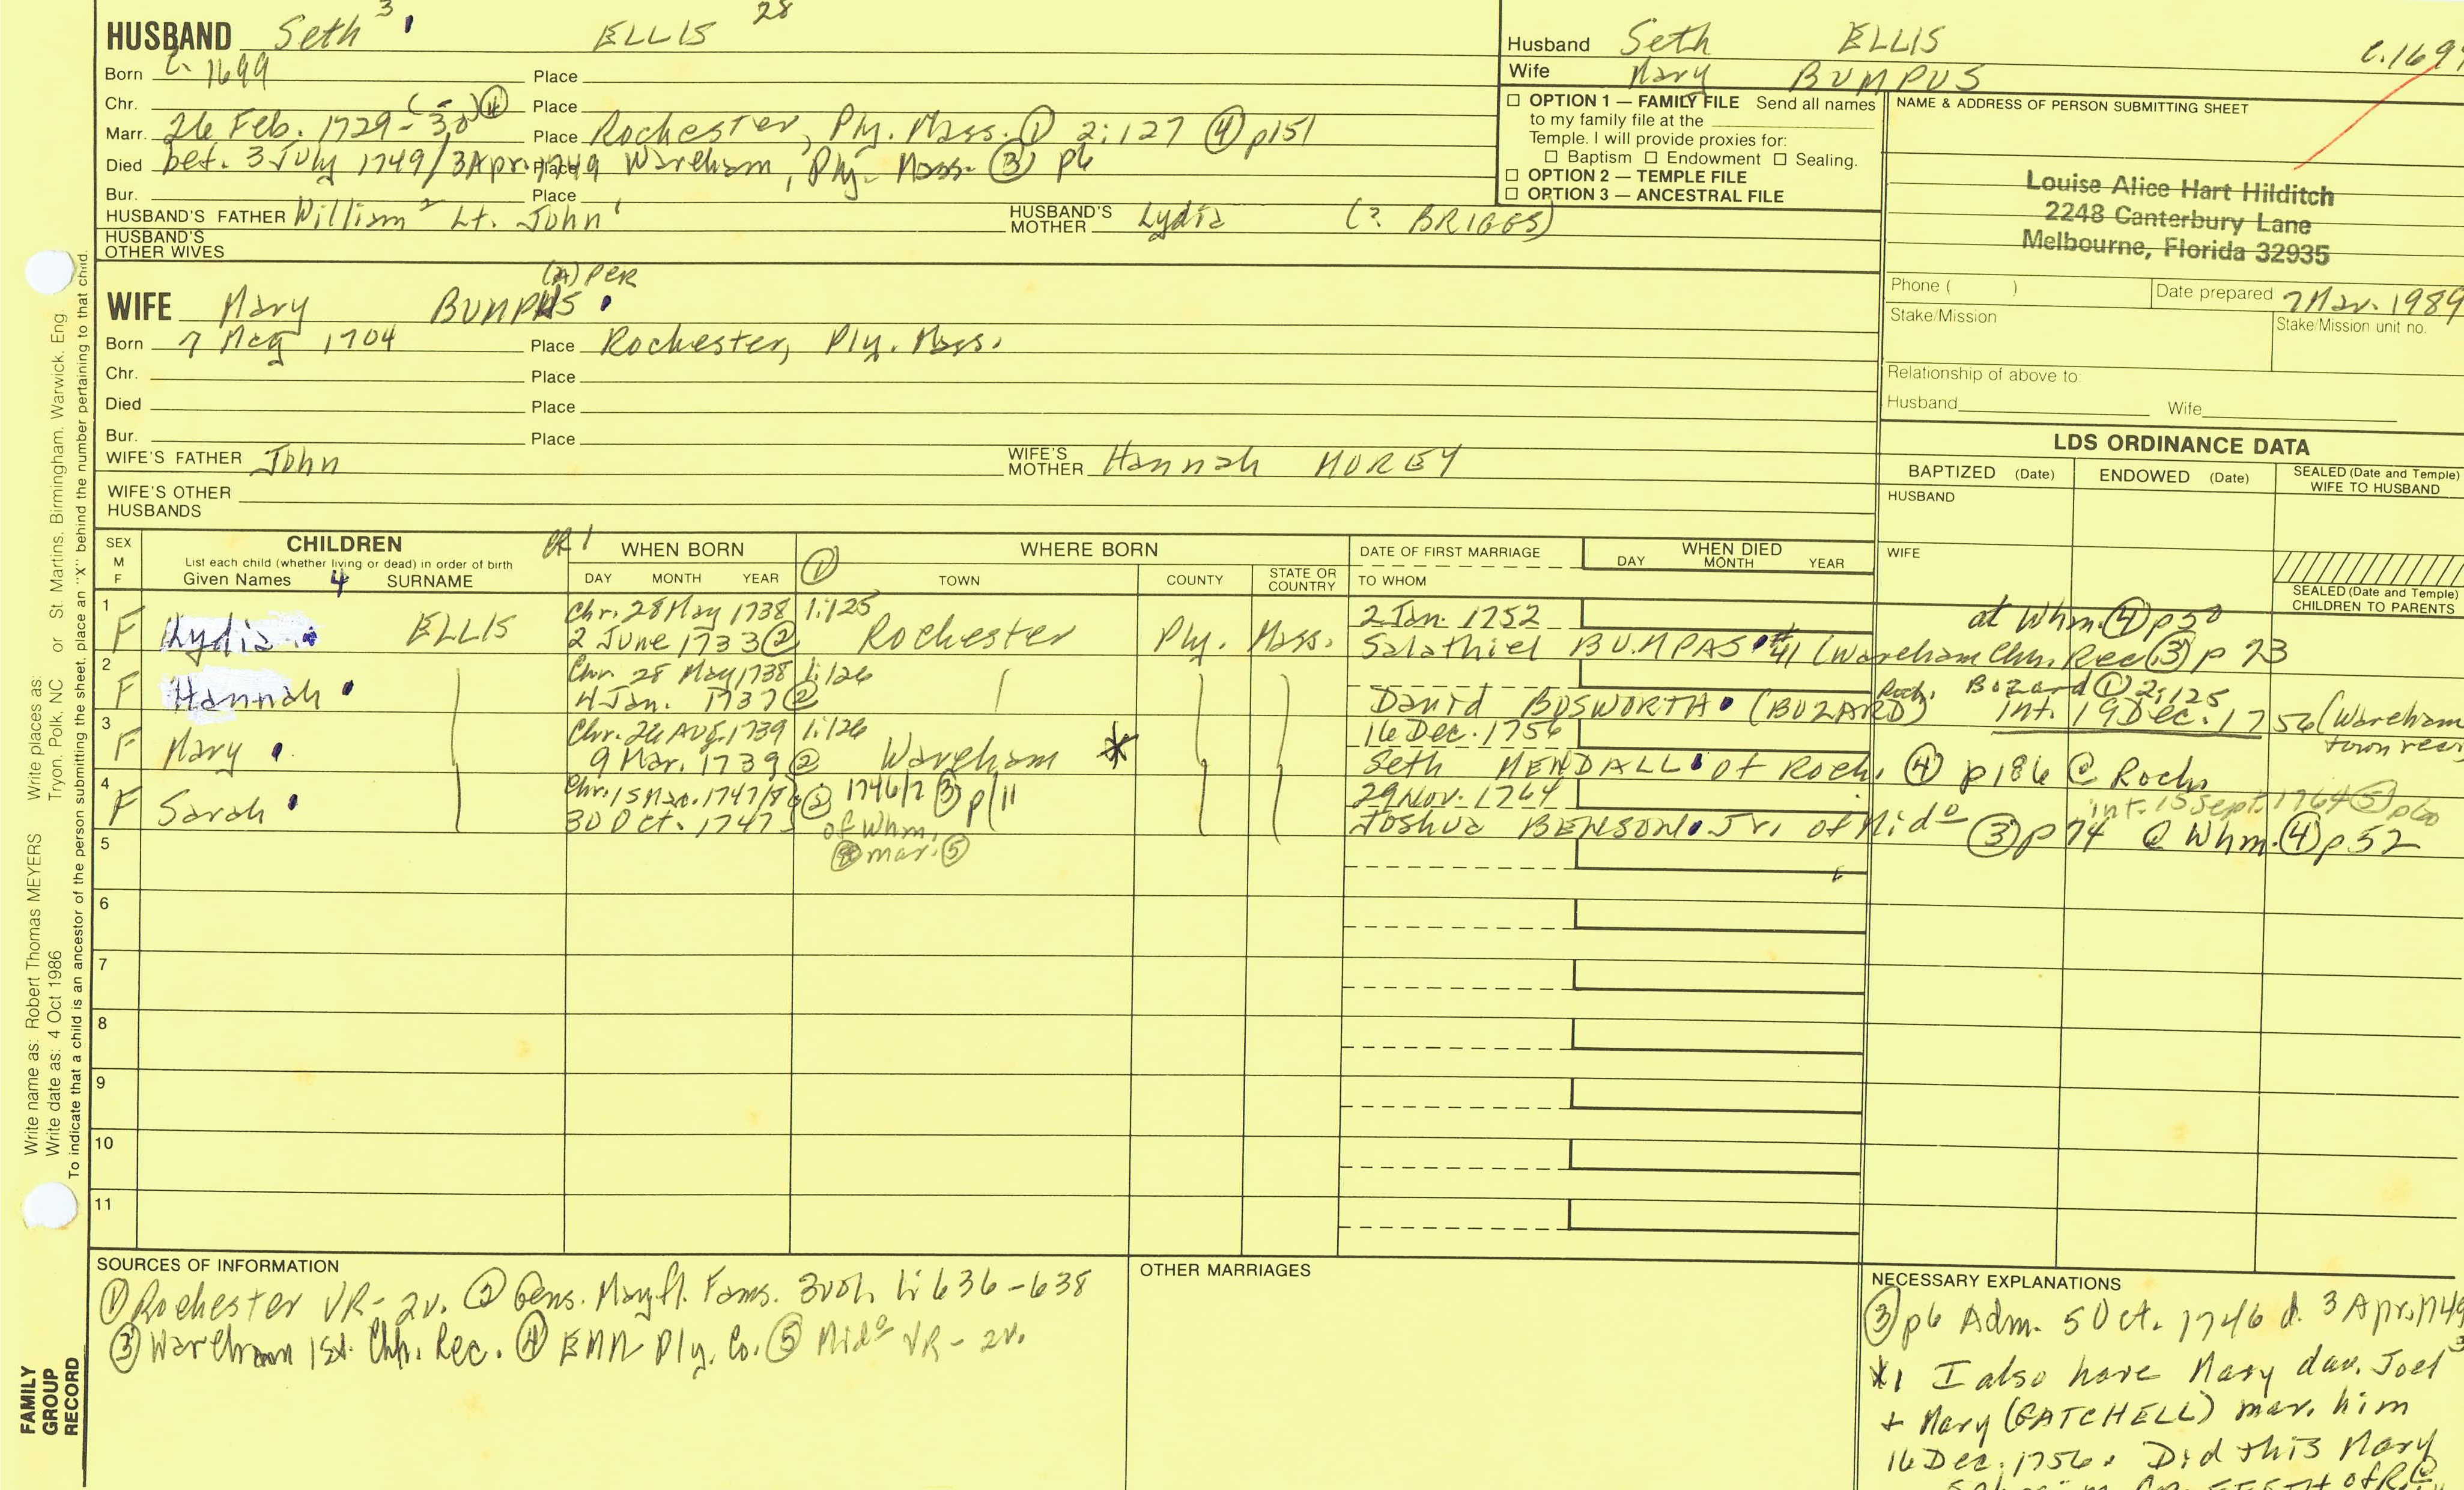 HUSBAND Seth 3 ELLIS 28
Born c. 1699 Place
Chr. Place
Marr. 26 Feb. 1729-30 (-) ④ Place Rochester, Ply. Mass. ① 2:127 ④ p151
Died bet. 3 July 1749/3 Apr. 1749 Place Wareham, Ply. Mass. ③ p6
Bur. Place
HUSBAND'S FATHER William 2 Lt. John 1 HUSBAND'S MOTHER Lydia (? BRIGGS)
HUSBAND'S OTHER WIVES
(A) PER
WIFE Mary BUMPUS
Born 7 May 1704 Place Rochester, Ply. Mass.
Chr. Place
Died Place
Bur. Place
WIFE'S FATHER John WIFE'S MOTHER Hannah MOREY
WIFE'S OTHER HUSBANDS
Husband Seth ELLIS
Wife Mary BUMPUS
c.169
☐ OPTION 1 — FAMILY FILE Send all names
to my family file at the
Temple. I will provide proxies for:
☐ Baptism ☐ Endowment ☐ Sealing.
☐ OPTION 2 — TEMPLE FILE
☐ OPTION 3 — ANCESTRAL FILE
NAME & ADDRESS OF PERSON SUBMITTING SHEET
Louise Alice Hart Hilditch
2248 Canterbury Lane
Melbourne, Florida 32935
Phone ( ) Date prepared 7 Mar. 1989
Stake/Mission Stake/Mission unit no.
Relationship of above to
Husband Wife
LDS ORDINANCE DATA
BAPTIZED (Date) ENDOWED (Date) SEALED (Date and Temple) WIFE TO HUSBAND
HUSBAND
WIFE
SEALED (Date and Temple) CHILDREN TO PARENTS
SEX M F
CHILDREN
List each child (whether living or dead) in order of birth
Given Names 4 SURNAME
CR 1 WHEN BORN
DAY MONTH YEAR
① WHERE BORN
TOWN COUNTY STATE OR COUNTRY
DATE OF FIRST MARRIAGE
TO WHOM
WHEN DIED
DAY MONTH YEAR
1 Chr. 28 May 1738 1:125 2 Jan. 1752 at Whm. ④ p 50
F Lydia ELLIS 2 June 1733 ② Rochester Ply. Mass. Salathiel BUMPAS #41 (Wareham Chh. Rec ③ p 23
2 Chr. 28 May 1738 1:126 Roch. Bozard ① 2:125
F Hannah 4 Jan. 1737 ② David BOSWORTH (BOZARD) Int. 19 Dec. 1756 (Wareham town rec
3 Chr. 26 Aug. 1739 1:126 16 Dec. 1756
F Mary 9 Mar. 1739 ② Wareham * Seth MENDALL of Roch. ④ p186 @ Roch.
4 Chr. 15 Mar. 1747/8 ② 1746/7 ③ p 11 29 Nov. 1764 int. 15 Sept. 1764 ⑤ p60
F Sarah 30 Oct. 1747 of Whm. Joshua BENSON Jr. of Mido ③ p 74 @ Whm. ④ p 52
5 @ mar. ⑤
6
7
8
9
10
11
SOURCES OF INFORMATION
① Rochester VR- 2v. ② Gens. Mayfl. Fams. 3vol. 1:636-638
③ Wareham 1st. Chh. Rec. ④ EMR Ply. Co. ⑤ Mido VR- 2v.
OTHER MARRIAGES
NECESSARY EXPLANATIONS
③ p6 Adm. 5 Oct. 1746 d. 3 Apr. 1749
*1 I also have Mary dau. Joel 3
+ Mary (GATCHELL) mar. him
16 Dec. 1756. Did this Mary
Write name as: Robert Thomas MEYERS Write places as: Tryon, Polk, NC or St. Martins, Birmingham, Warwick, Eng
Write date as: 4 Oct 1986
To indicate that a child is an ancestor of the person submitting the sheet, place an "X" behind the number pertaining to that child.
FAMILY
GROUP
RECORD